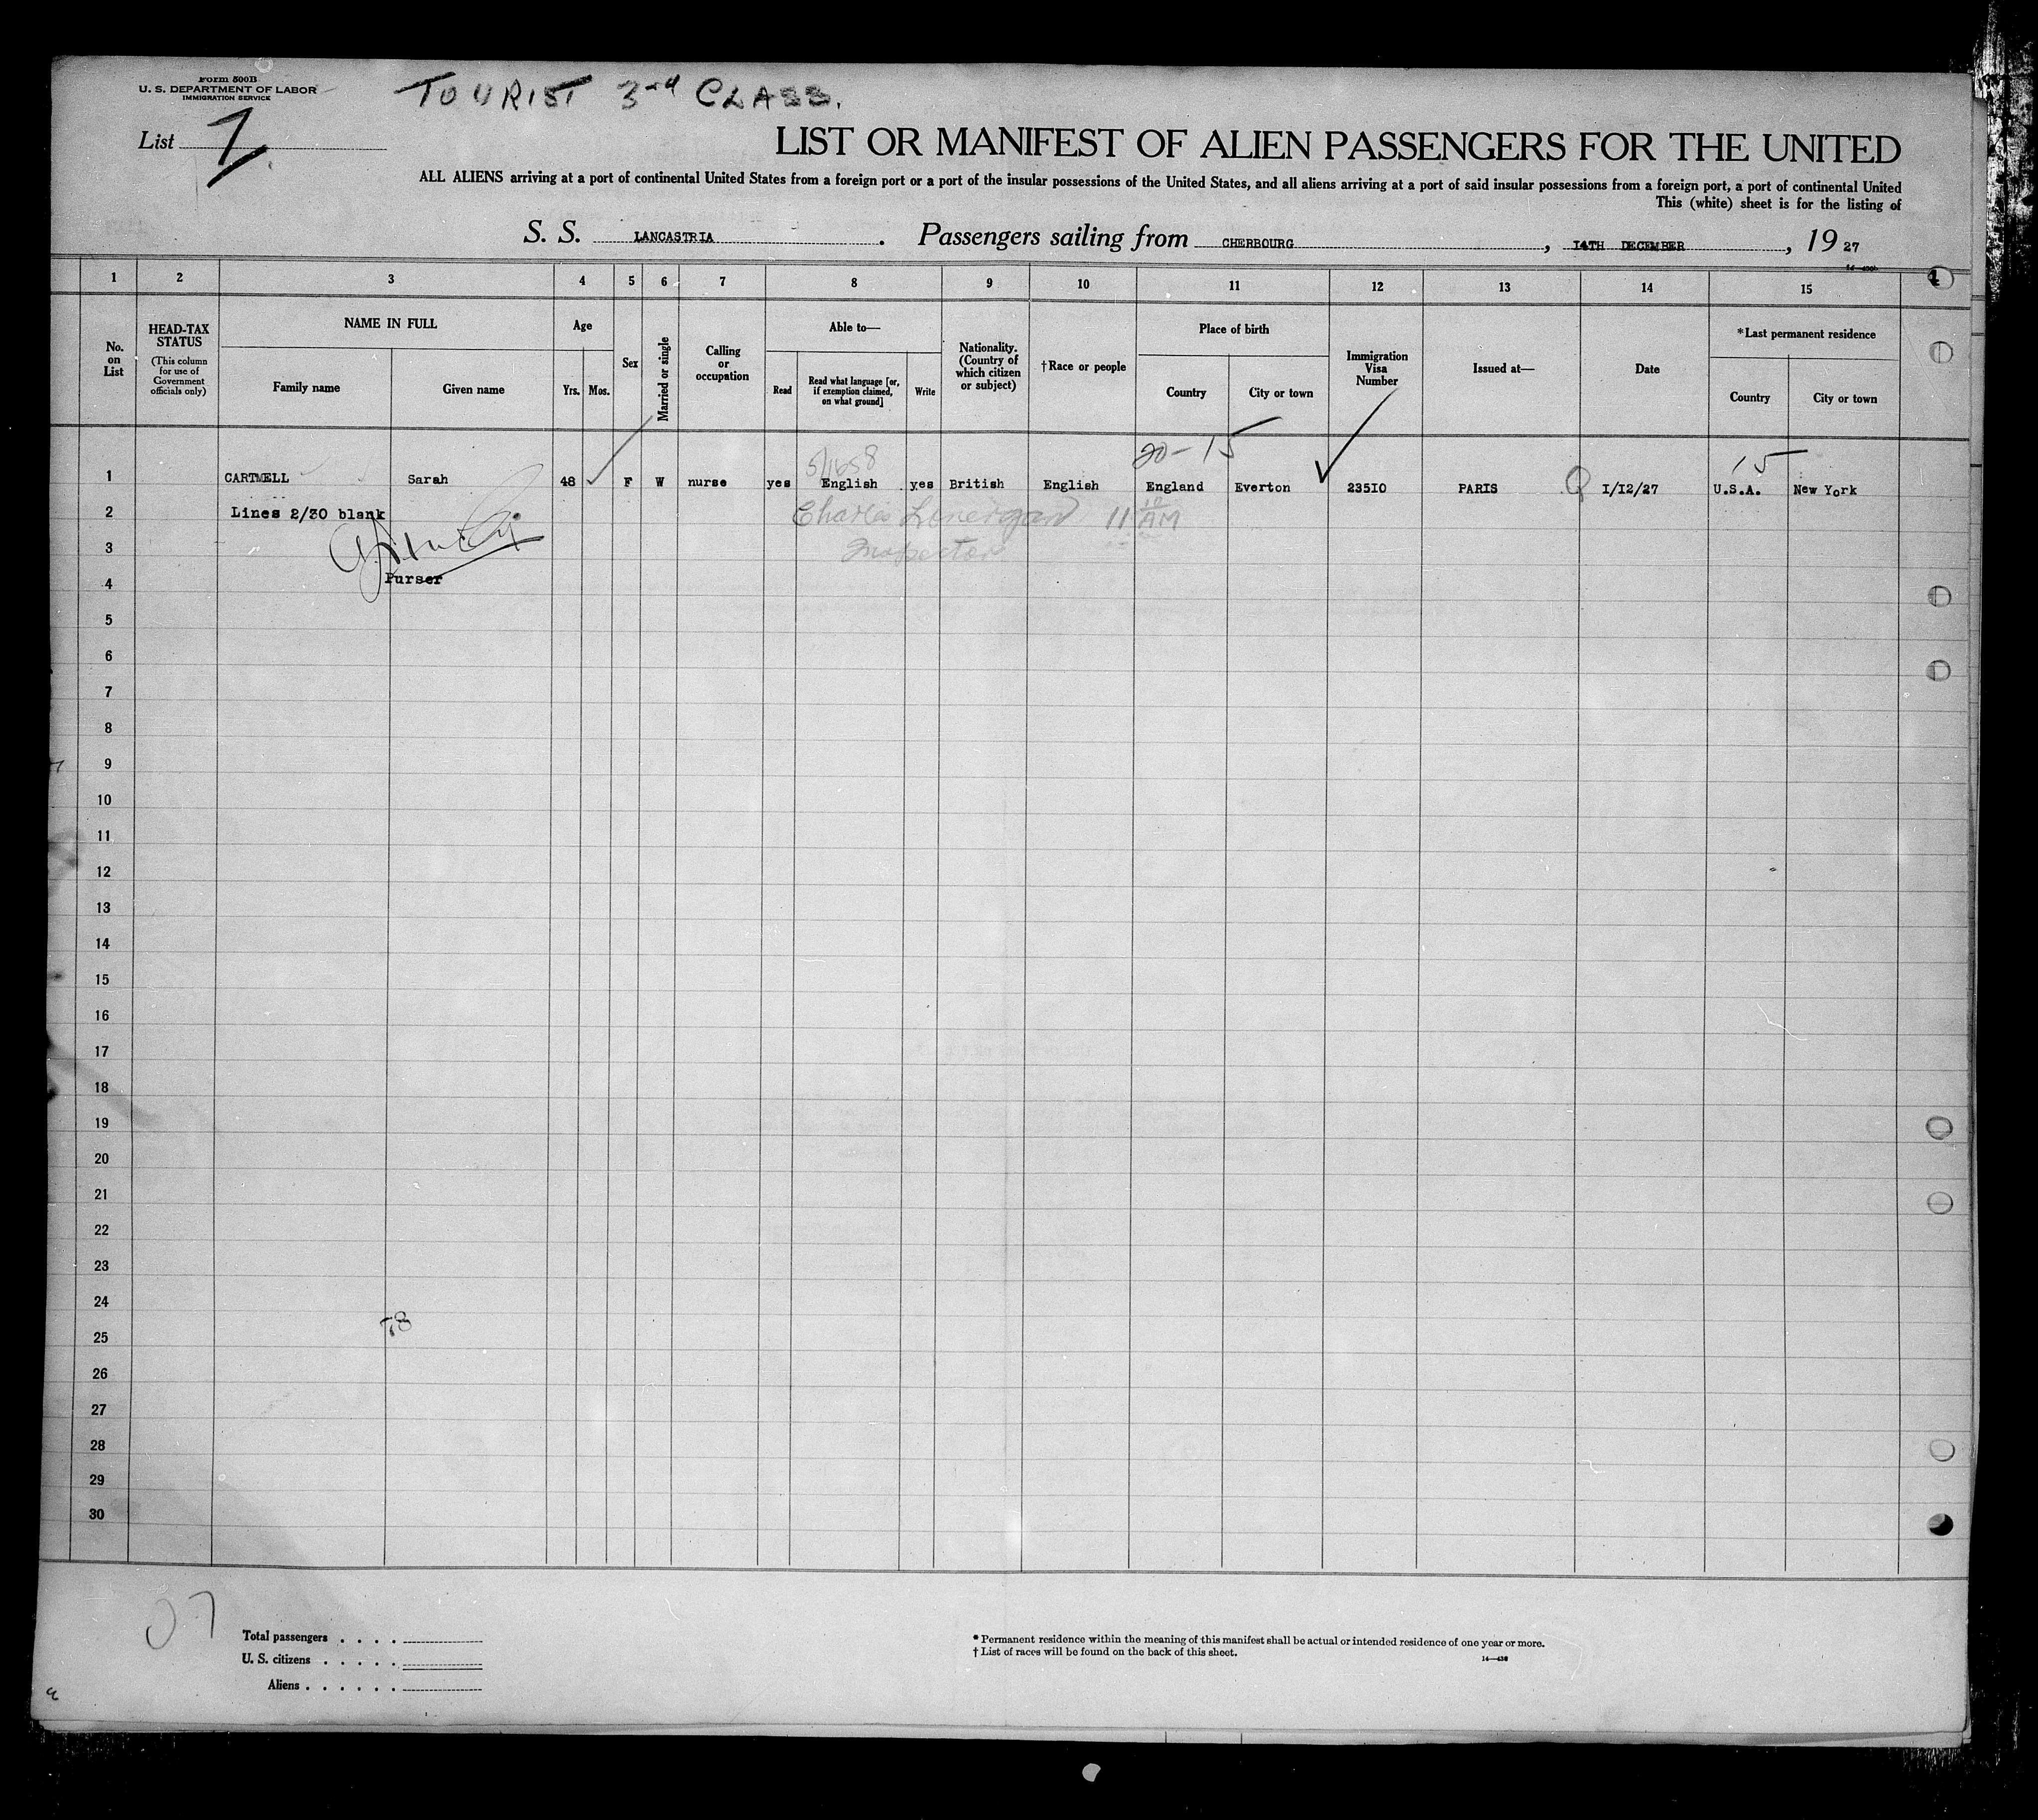 Form 500B
U. S. DEPARTMENT OF LABOR
IMMIGRATION SERVICE
TOURIST 3rd CLASS.
List
LIST OR MANIFEST OF ALIEN PASSENGERS FOR THE UNITED
ALL ALIENS arriving at a port of continental United States from a foreign port or a port of the insular possessions of the United States, and all aliens arriving at a port of said insular possessions from a foreign port, a port of continental United
This (white) sheet is for the listing of
S. S. LANCASTRIA. Passengers sailing from CHERBOURG, I4TH DECEMBER, 19 27
1 2 3 4 5 6 7 8 9 10 11 12 13 14 15
No. on List
HEAD-TAX STATUS
(This column for use of Government officials only)
NAME IN FULL
Family name
Given name
Age
Yrs. Mos.
Sex
Married or single
Calling or occupation
Able to—
Read
Read what language [or, if exemption claimed, on what ground]
Write
Nationality. (Country of which citizen or subject)
†Race or people
Place of birth
Country
City or town
Immigration Visa Number
Issued at—
Date
*Last permanent residence
Country
City or town
20-15
15
1 CARTMELL Sarah 48 F W nurse yes English yes British English England Everton 235I0 PARIS I/I2/27 U.S.A. New York
2 Lines 2/30 blank Charles Lonergan 11 AM
3 Inspector
4 Purser
5
6
7
8
9
10
11
12
13
14
15
16
17
18
19
20
21
22
23
24
25
26
27
28
29
30
Total passengers . . . .
U. S. citizens . . . . .
Aliens . . . . . .
* Permanent residence within the meaning of this manifest shall be actual or intended residence of one year or more.
† List of races will be found on the back of this sheet.